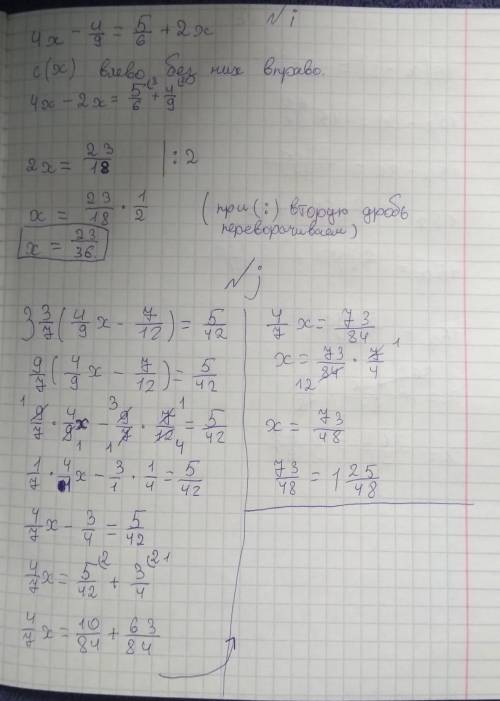 № i
4x - 4/9 = 5/6 + 2x
с(x) влево, без них вправо.
4x - 2x = 5/6 (3 + 4/9 (2
2x = 23/18 | : 2
x = 23/18 · 1/2 (при (:) вторую дробь
переворачиваем)
x = 23/36.
№ j
3 3/7 (4/9 x - 7/12) = 5/42
9/7 (4/9 x - 7/12) = 5/42
9/7 · 4/9 x - 9/7 · 7/12 = 5/42
1/7 · 4/1 x - 3/1 · 1/4 = 5/42
4/7 x - 3/4 = 5/42
4/7 x = 5/42 (2 + 3/4 (21
4/7 x = 10/84 + 63/84
4/7 x = 73/84
x = 73/84 · 7/4
x = 73/48
73/48 = 1 25/48